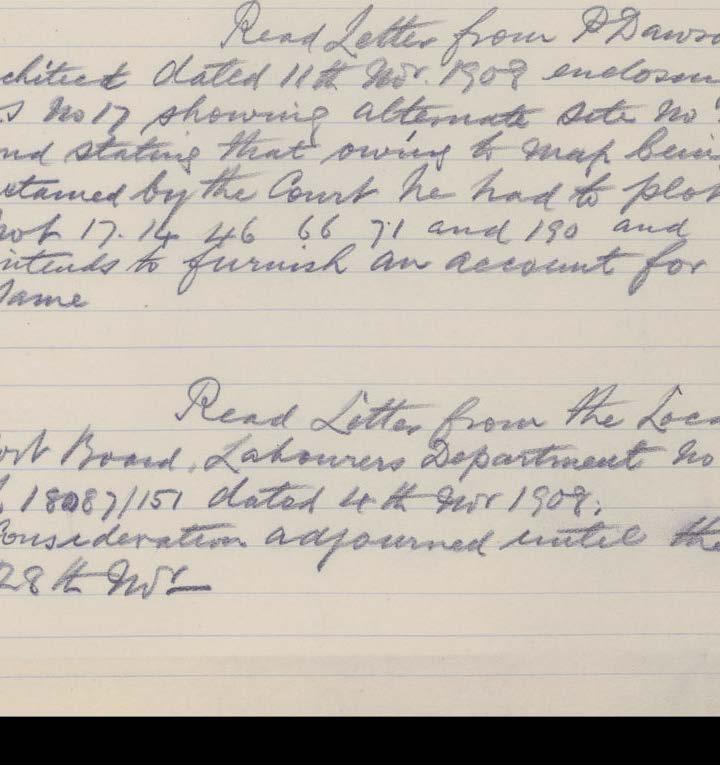 Read Letter from P Dawso
chitect dated 11th Nov. 1908 enclosin
s No 17 showing alternate site No
nd stating that owing to map being
etained by the Court he had to plot
not 17. 14 46 66 71 and 190 and
ntends to furnish an account for
Same
Read Letter from the Loca
ort Board, Labourers Department No
18087/151 dated 4th Nov 1908.
Consideration adjourned until the
28th Novr